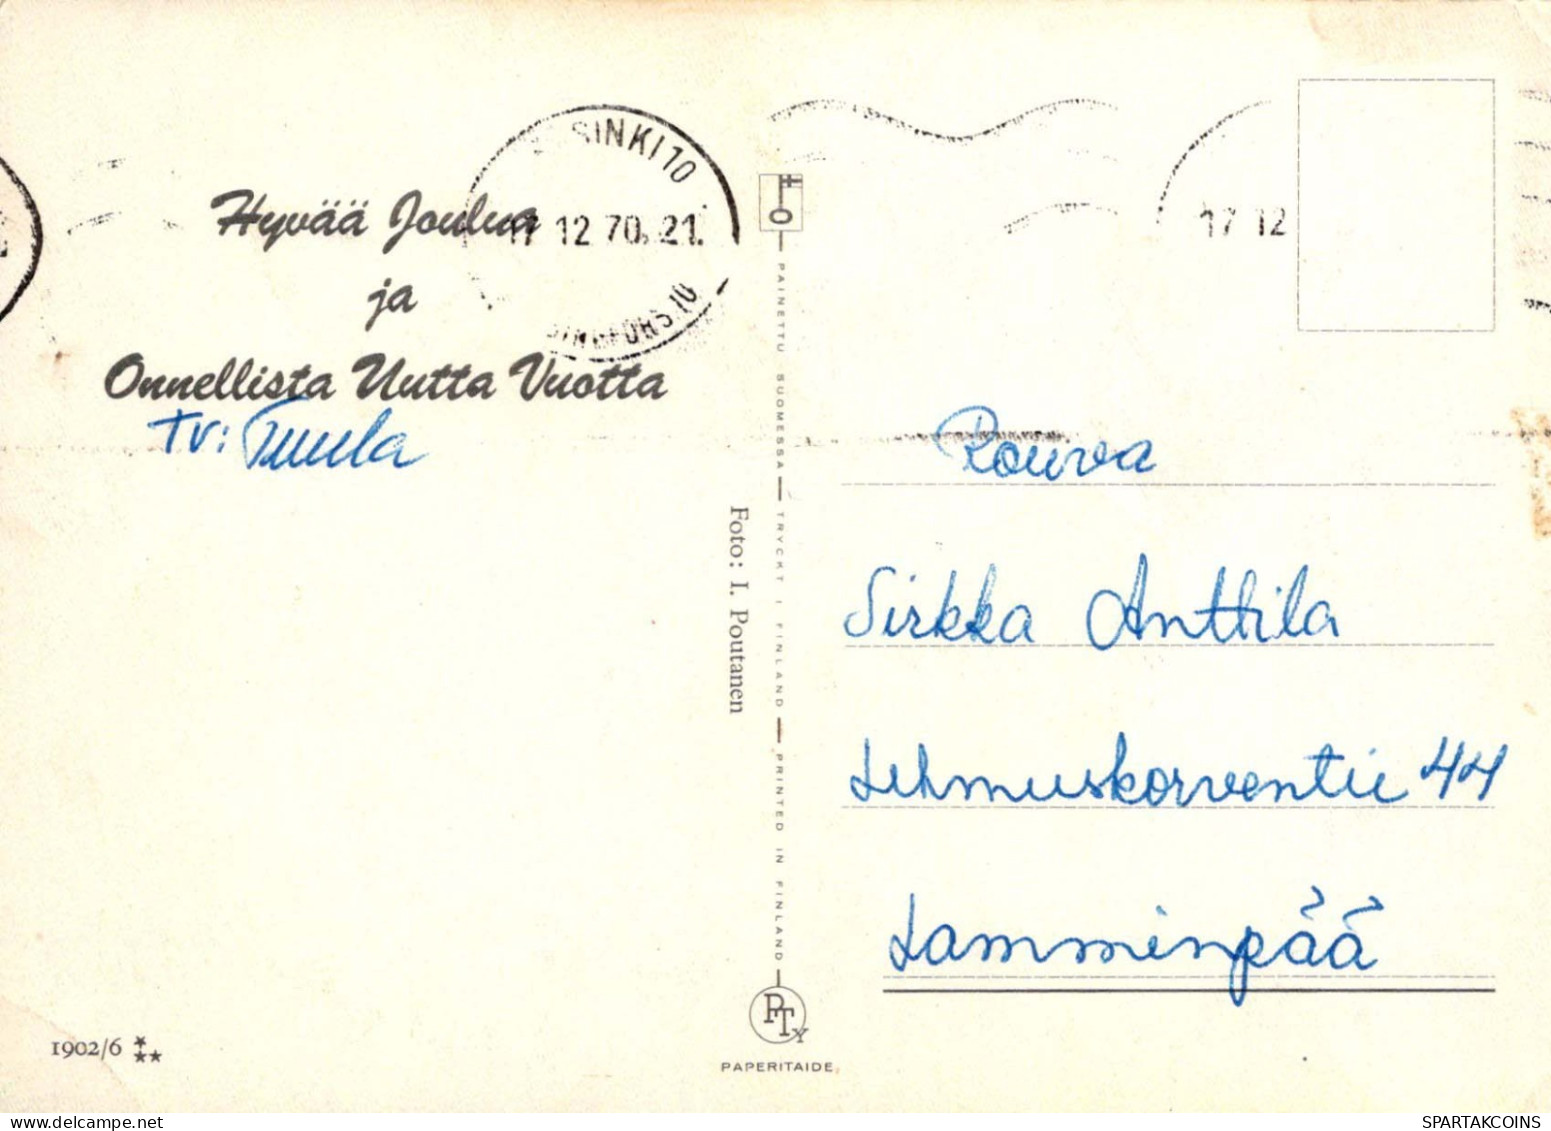 Hyvää Joulua
ja
Onnellista Uutta Vuotta
Tv: Tuula
SINKI 10
17 12 70. 21.
SINGFORS 10
17 12
PAINETTU SUOMESSA — TRYCKT I FINLAND — PRINTED IN FINLAND
Foto: I. Poutanen
Rouva
Sirkka Anttila
Lehmuskorventie 44
Lamminpää
PTY
PAPERITAIDE
1902/6
SPARTAKCOINS